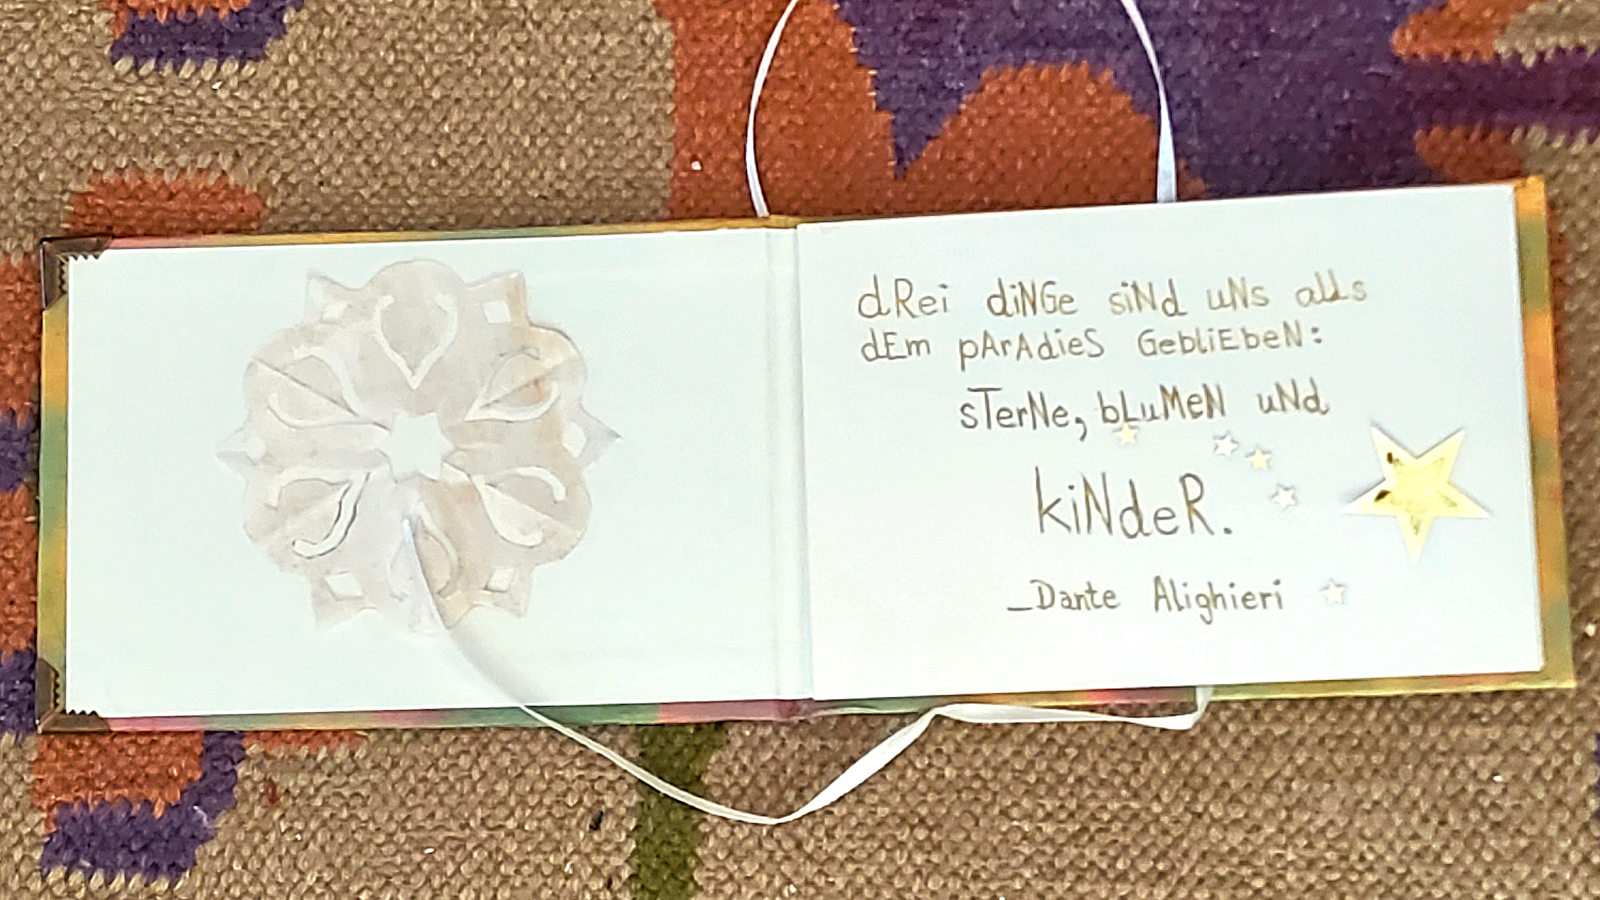 dRei diNGe siNd uNs aus
dEm pArAdieS GebliEbeN:
sTerNe, bLuMeN uNd
kiNdeR.
_Dante Alighieri